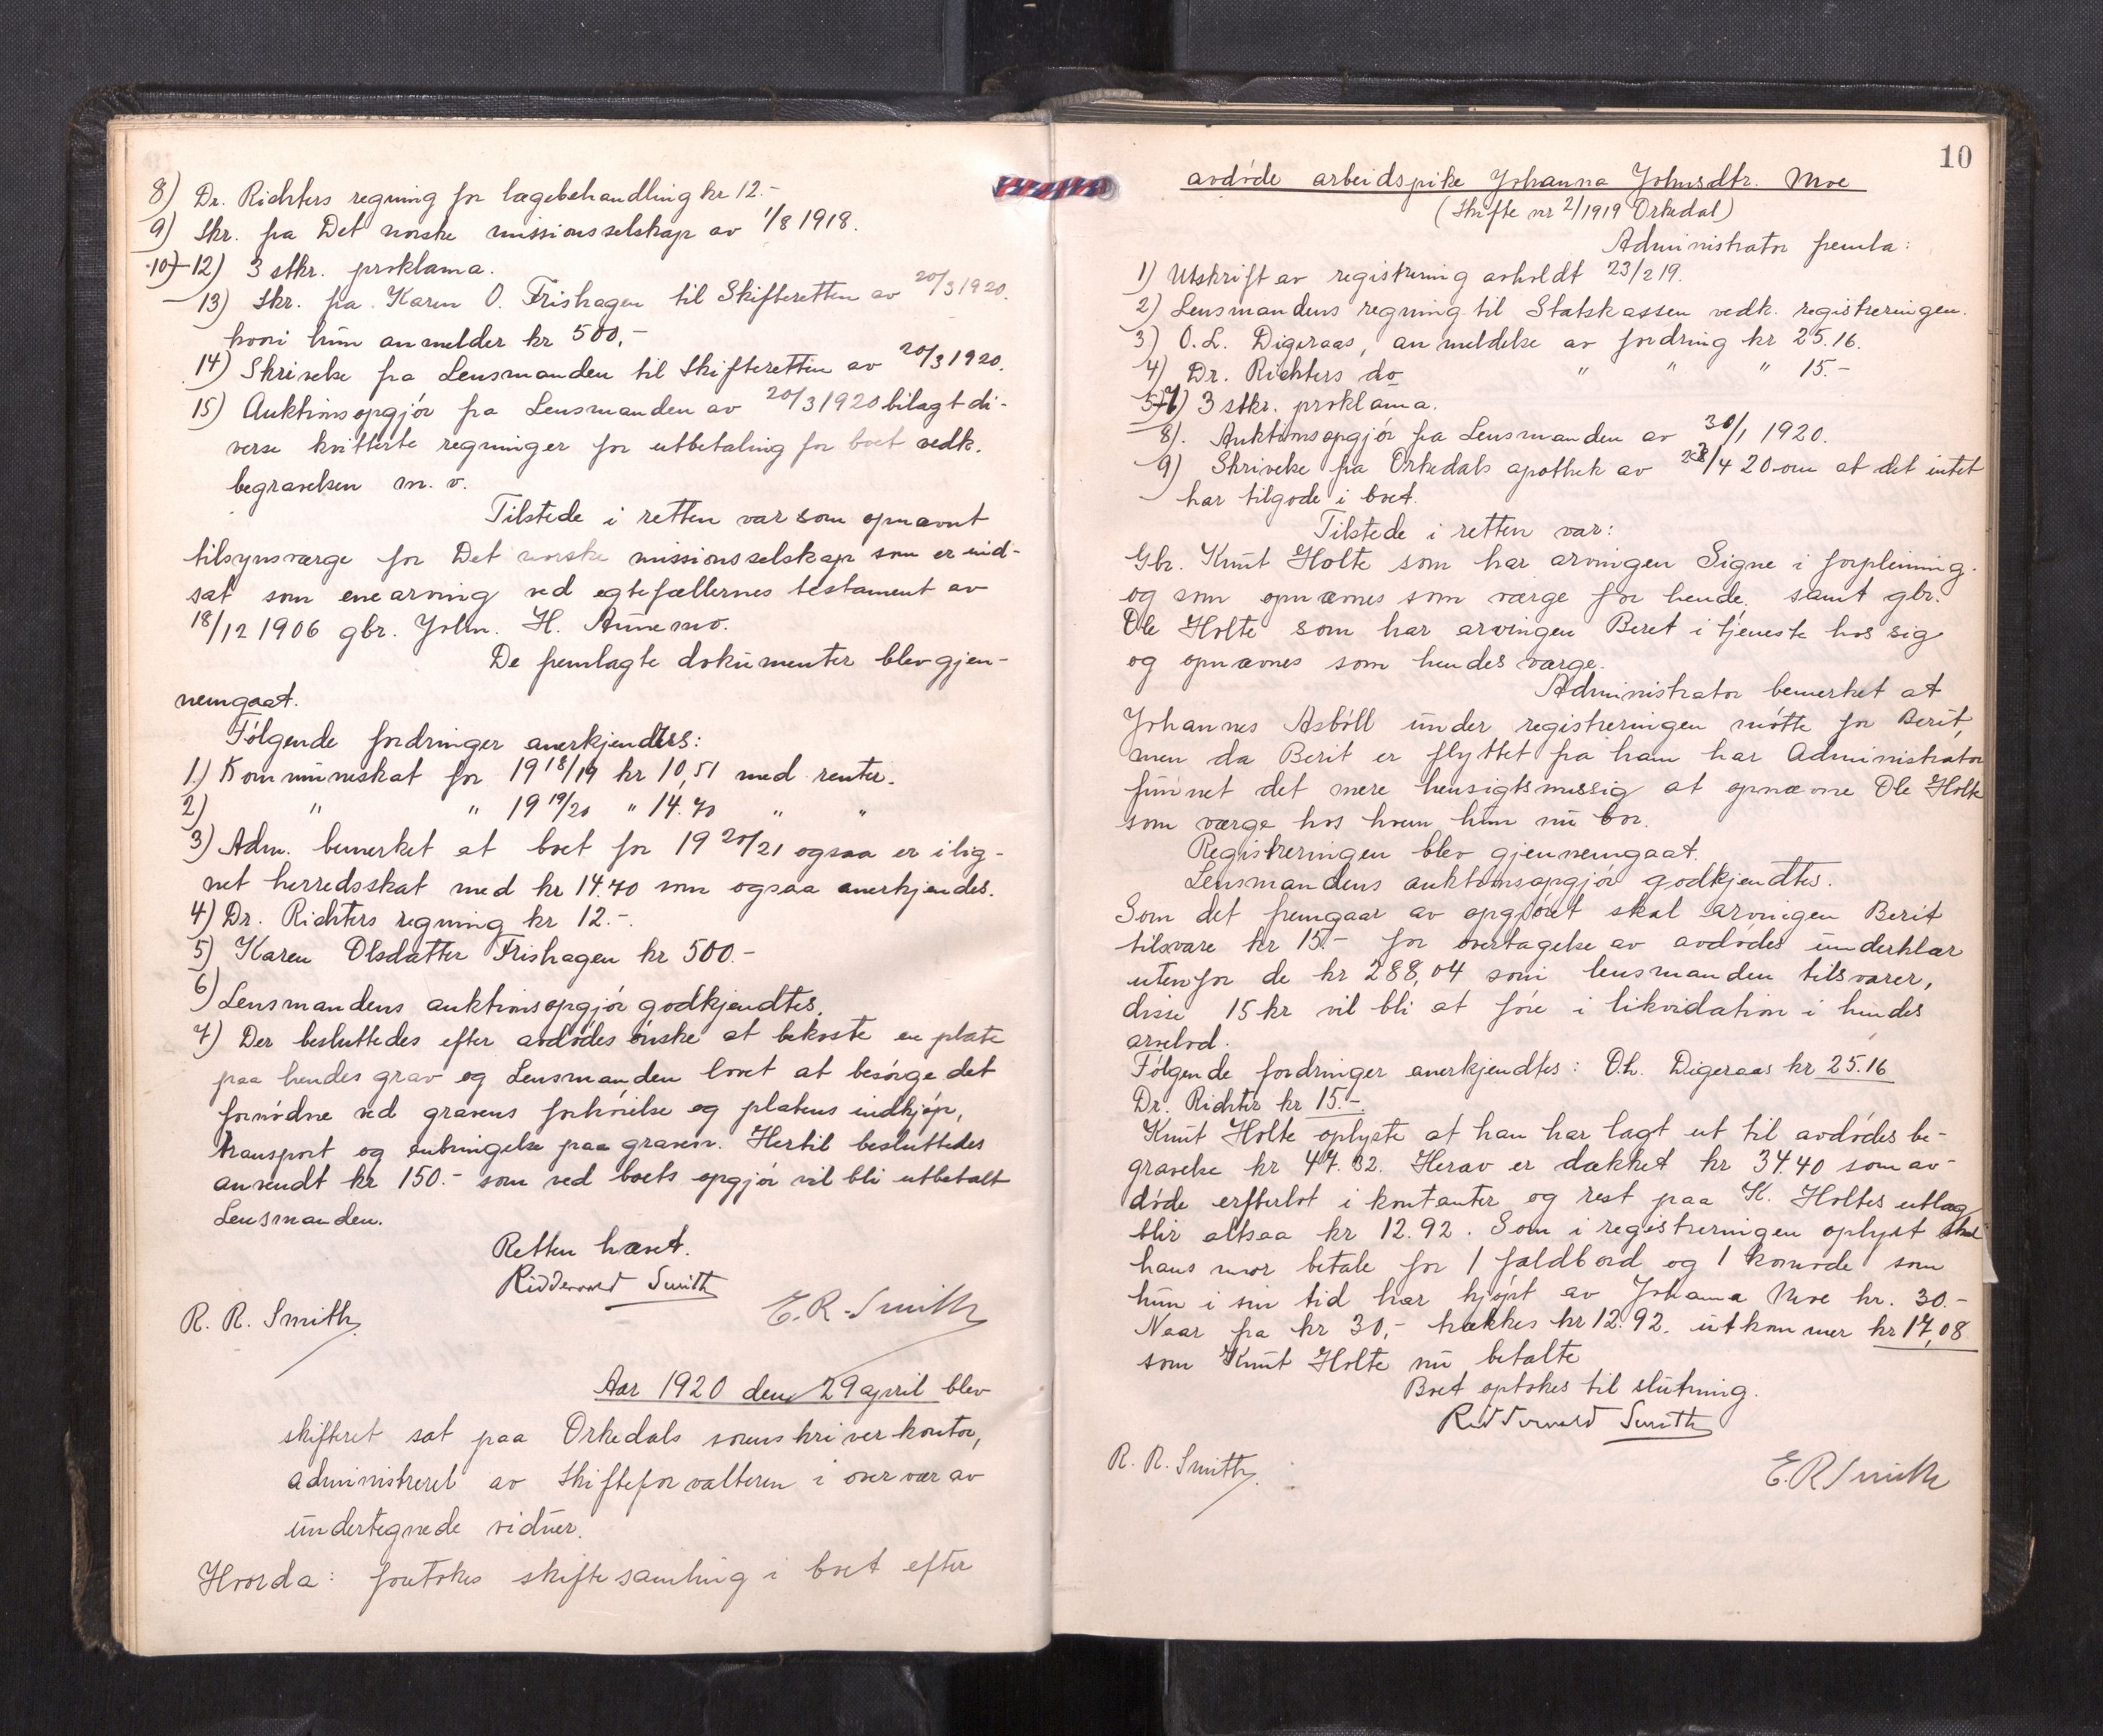 8) Dr. Richters regning for lægebehandling kr 12.-
9) Skr. fra Det norske missionsselskap av 1/8 1918.
10)-12) 3 stkr. proklama.
13) Skr. fra Karen O. Frishagen til Skifteretten av 20/3 1920.
hvori hun anmelder kr 500,-
14) Skrivelse fra Lensmanden til Skifteretten av 20/3 1920.
15) Auktionsopgjör fra Lensmanden av 20/3 1920 bilagt di-
verse kvitterte regninger for utbetaling for boet vedk.
begravelsen m. v.
Tilstede i retten var som opnævnt
tilsynsværge for Det norske missionsselskap som er ind-
sat som enearving ved egtefællernes testament av
18/12 1906 gbr. John. H. Aunemo.
De fremlagte dokumenter blev gjen-
nemgaat.
Fölgende fordringer anerkjendtes:
1.) Kommuneskat for 19 18/19 kr 10,51 med renter.
2) " " 19 19/20 " 14.70 " "
3) Adm. bemerket at boet for 19 20/21 ogsaa er ilig-
net herredsskat med kr 14.70 som ogsaa anerkjendes.
4) Dr. Richters regning kr 12.-
5) Karen Olsdatter Frishagen kr 500.-
6) Lensmandens auktionsopgjör godkjendtes.
7) Der besluttedes efter avdödes önske at bekoste en plate
paa hendes grav og Lensmanden lovet at besörge det
fornödne ved gravens forhöielse og platens indkjöp,
transport og anbringelse paa graven. Hertil besluttedes
anvendt kr 150.- som ved boets opgjör vil bli utbetalt
Lensmanden.
Retten hævet.
Ridderwold Smith
R. R. Smith
E. R. Smith
Aar 1920 den 29 april blev
skifteret sat paa Orkedals sorenskriverkontor,
administreret av Skifteforvalteren i overvær av
undertegnede vidner.
Hvorda: foretokes skiftesamling i boet efter
10
avdöde arbeidspike Johanna Johnsdtr. Moe
(Skifte nr 2/1919 Orkedal)
Administrator fremla:
1) Utskrift av registrering avholdt 23/2 19.
2) Lensmandens regning til Statskassen vedk. registreringen.
3) O. L. Digeraas, anmeldelse av fordring kr 25.16.
4) Dr. Richters do " " " 15.-
5-7) 3 stkr. proklama.
8). Auktionsopgjör fra Lensmanden av 30/1 1920.
9) Skrivelse fra Orkedals apothek av 28/4 20 om at det intet
har tilgode i boet.
Tilstede i retten var:
Gbr. Knut Holte som har arvingen Signe i forpleining
og som opnævnes som værge for hende, samt gbr.
Ole Holte som har arvingen Beret i tjeneste hos sig
og opnævnes som hendes værge.
Administrator bemerket at
Johannes Asböll under registreringen mötte for Berit,
men da Berit er flyttet fra ham har Administrator
funnet det mere hensigtsmessig at opnævne Ole Holte
som værge hos hvem hun nu bor.
Registreringen blev gjennemgaat.
Lensmandens auktionsopgjör godkjendtes.
Som det fremgaar av opgjöret skal arvingen Berit
tilsvare kr 15.- for overtagelse av avdödes underklær
utenfor de kr 288,04 som lensmanden tilsvarer,
disse 15 kr vil bli at före i likvidation i hendes
arvelod.
Fölgende fordringer anerkjendtes: O.L. Digeraas kr 25.16
Dr. Richter kr 15.-.
Knut Holte oplyste at han har lagt ut til avdödes be-
gravelse kr 47.32. Herav er dækket kr 34.40 som av-
döde erfterlot i kontanter og rest paa K. Holtes utlæg
blir altsaa kr 12.92. Som i registreringen oplyst skal
hans mor betale for 1 faldbord og 1 komode som
hun i sin tid har kjöpt av Johanna Moe kr. 30.-
Naar fra kr 30,- trækkes kr 12.92. utkommer kr 17,08
som Knut Holte nu betalte
Boet optokes til slutning.
Ridderwold Smith
R. R. Smith
E. R Smith